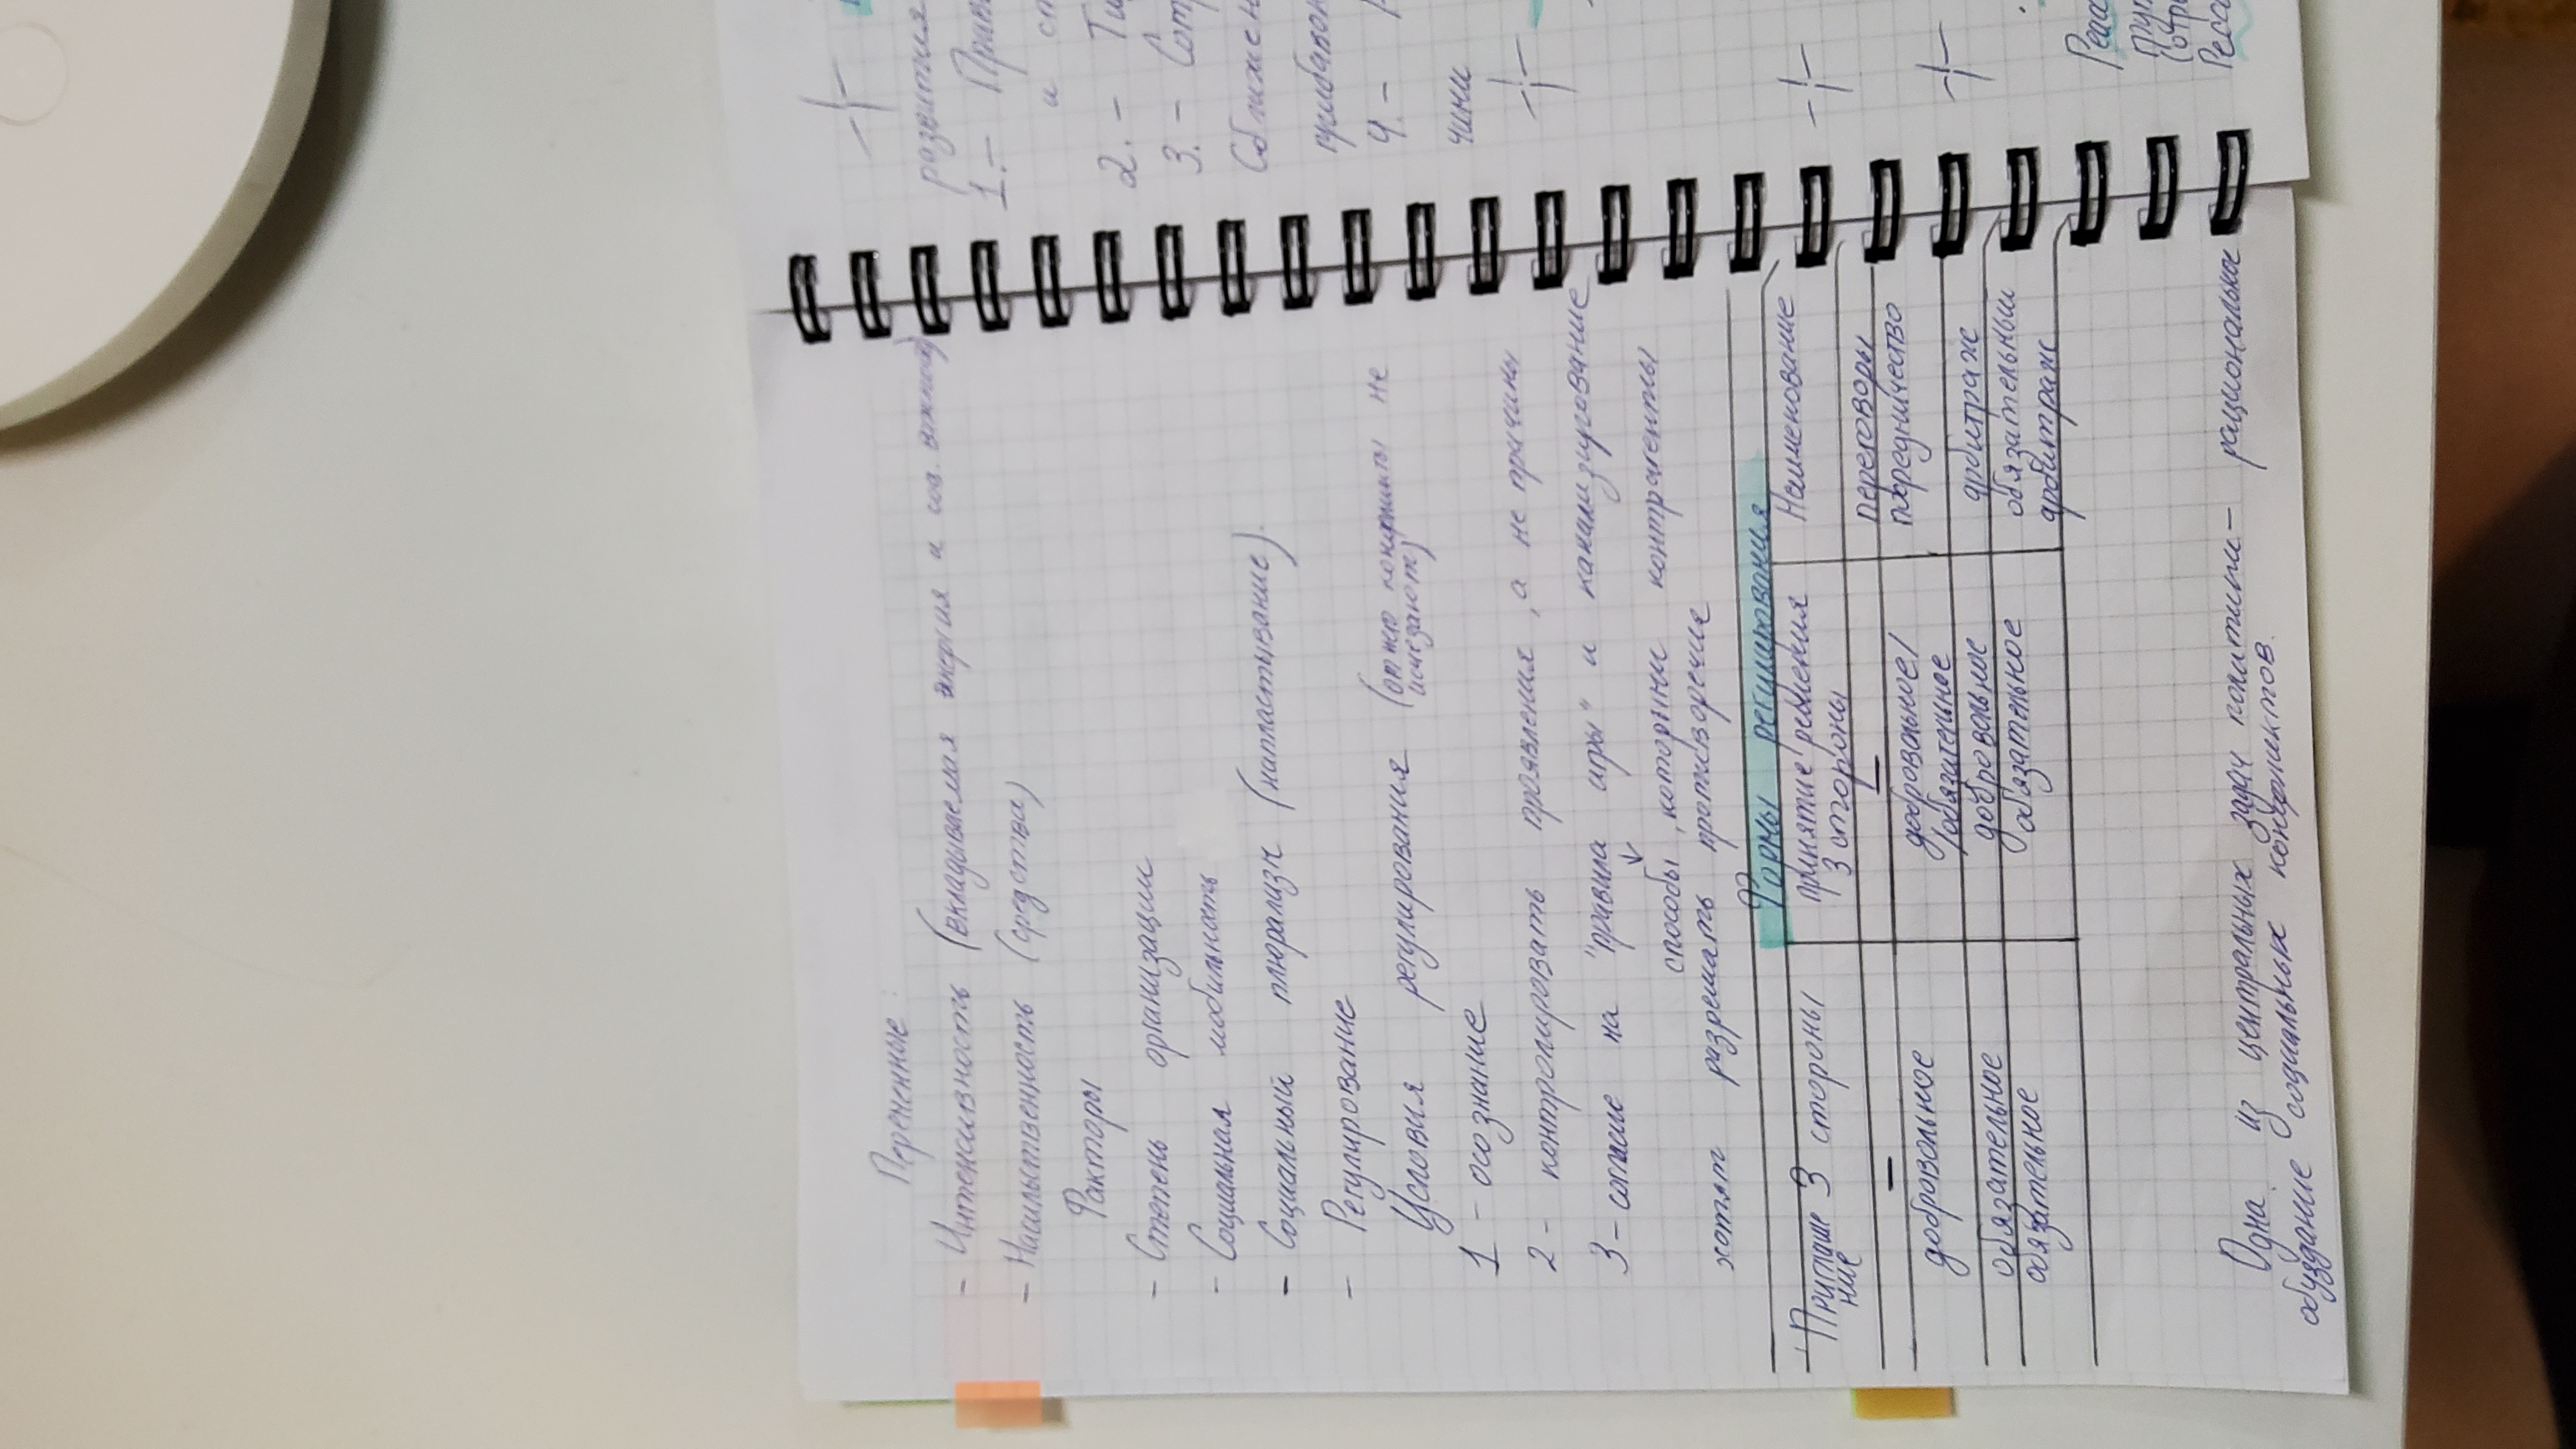 Переменные:
- Интенсивность (вкладываемая энергия и соц. важность)
- Насильственность (средства)
Факторы
- Степень организации
- Социальная мобильность
- Социальный плюрализм (напластывание).
- Регулирование
Условия регулирования (от него конфликты не исчезают)
1 - осознание
2 - контролировать проявления, а не причины
3 - согласие на "правила игры" и канализирование
способы, которыми контрагенты
хотят разрешать противоречие
Формы регулирования
Приглашение 3 стороны | принятие решения 3 стороны | Наименование
- | - | переговоры
добровольное | добровольное/обязательное | посредничество
обязательное | добровольное | арбитраж
обязательное | обязательное | обязательный арбитраж
Одна из центральных задач политики - рациональное
обуздание социальных конфликтов.
развития
1.- Прав
и ст
2.- Ти
3.- Сот
Сближен
4.-
чини